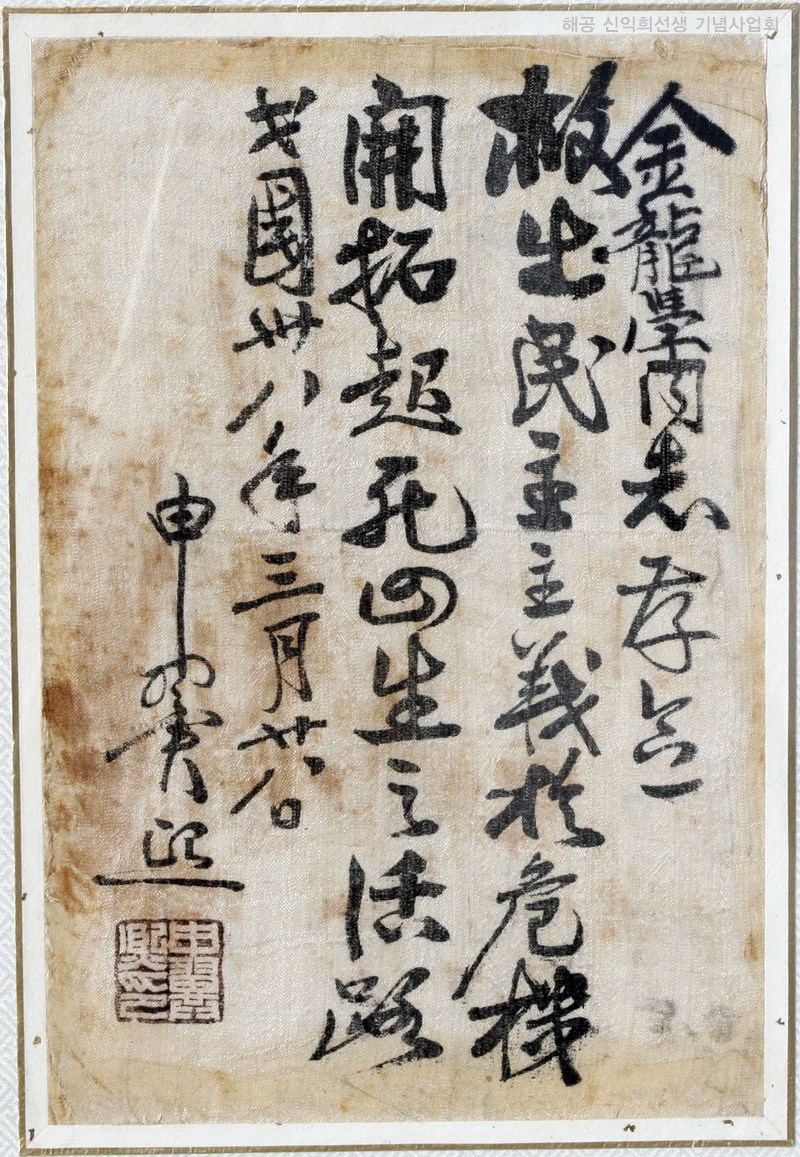 해공 신익희선생 기념사업회
金龍學同志 存念
救出民主主義於危機
開拓起死回生之活路
民國卅八年三月廿八日
申翼熙
申翼熙印